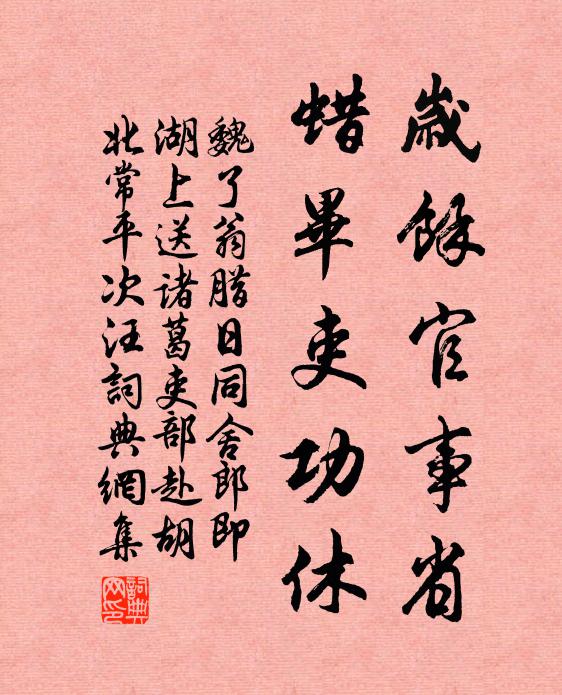 歲餘官事省
蜡畢吏功休
魏了翁腊日同舍郎即
湖上送諸葛吏部赴胡
北常平次汪詞典網集
詞典网印